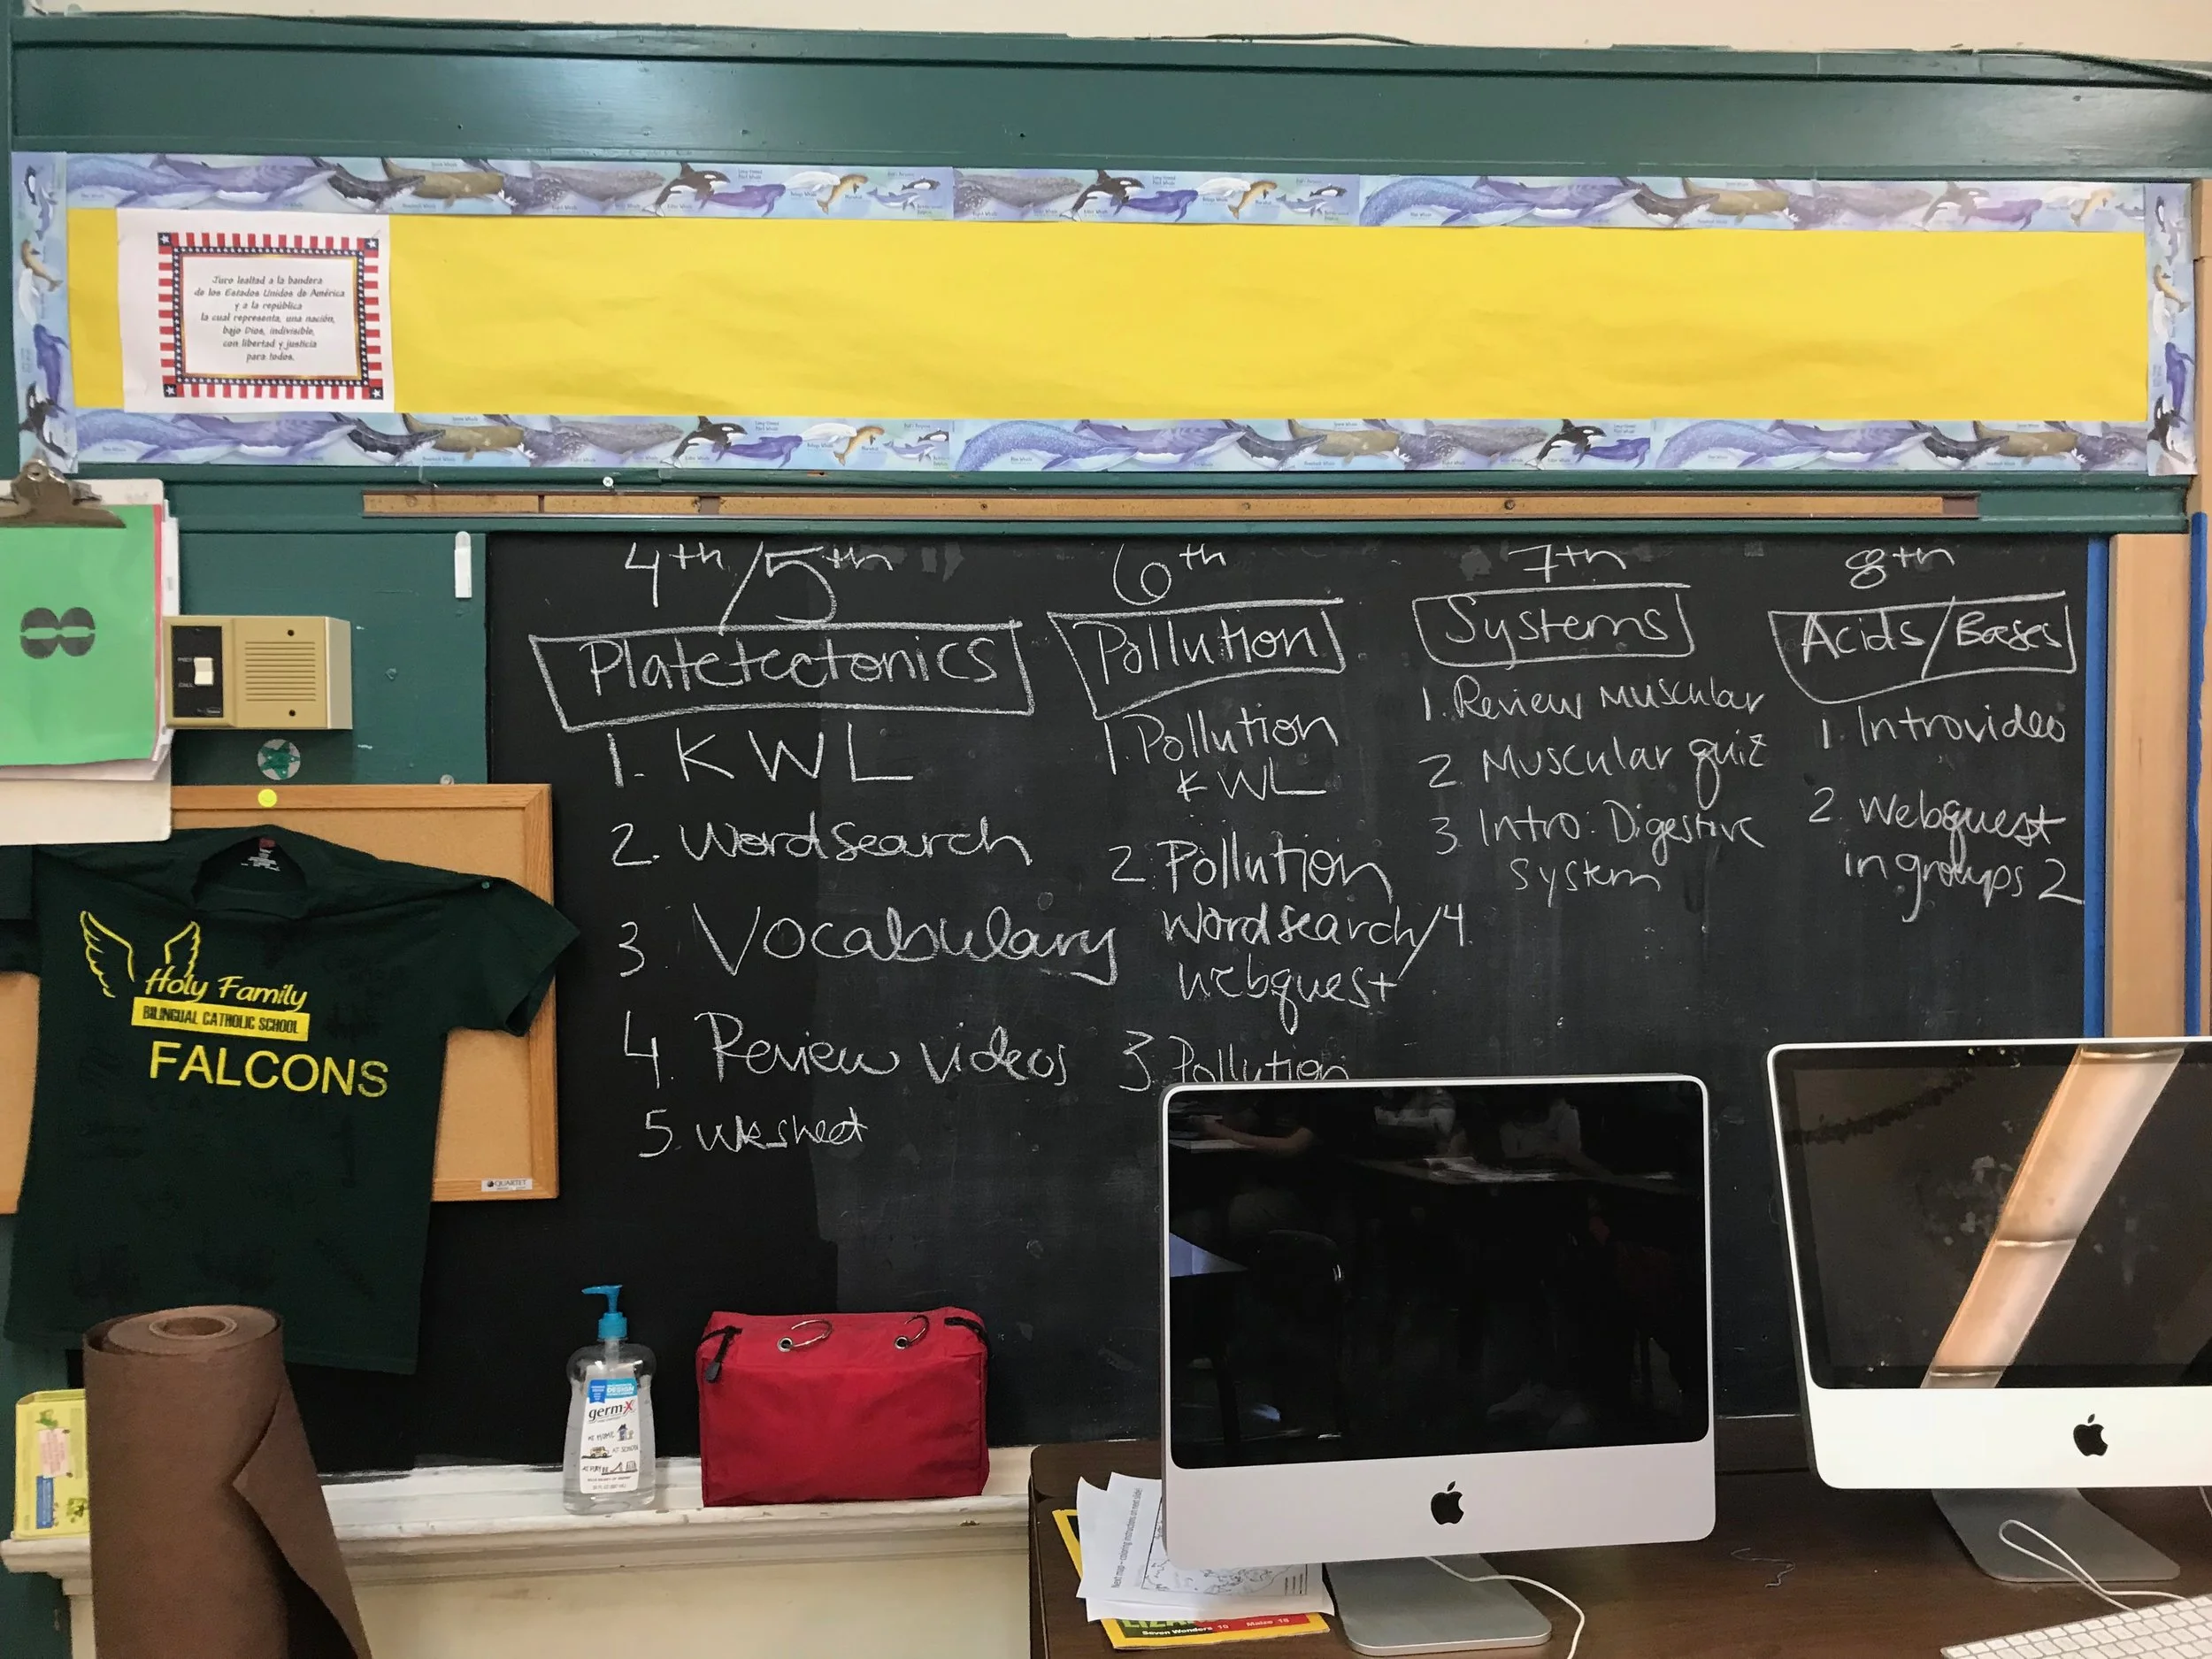 Juro lealtad a la bandera
de los Estados Unidos de América
y a la república
la cual representa, una nación,
bajo Dios, indivisible,
con libertad y justicia
para todos.
8
4th/5th
Platetectonics
1. KWL
2. Wordsearch
3. Vocabulary
4. Review videos
5. wksheet
6th
Pollution
1. Pollution
KWL
2. Pollution
Wordsearch/4
Webquest
3. Pollution
7th
Systems
1. Review Muscular
2. Muscular quiz
3. Intro: Digestive
System
8th
Acids/Bases
1. Introvideo
2. Webquest
in groups 2
Holy Family
BILINGUAL CATHOLIC SCHOOL
FALCONS
QUARTET
germ-X
AT HOME
AT SCHOOL
AT PLAY
Seven Wonders 10 Maize 18